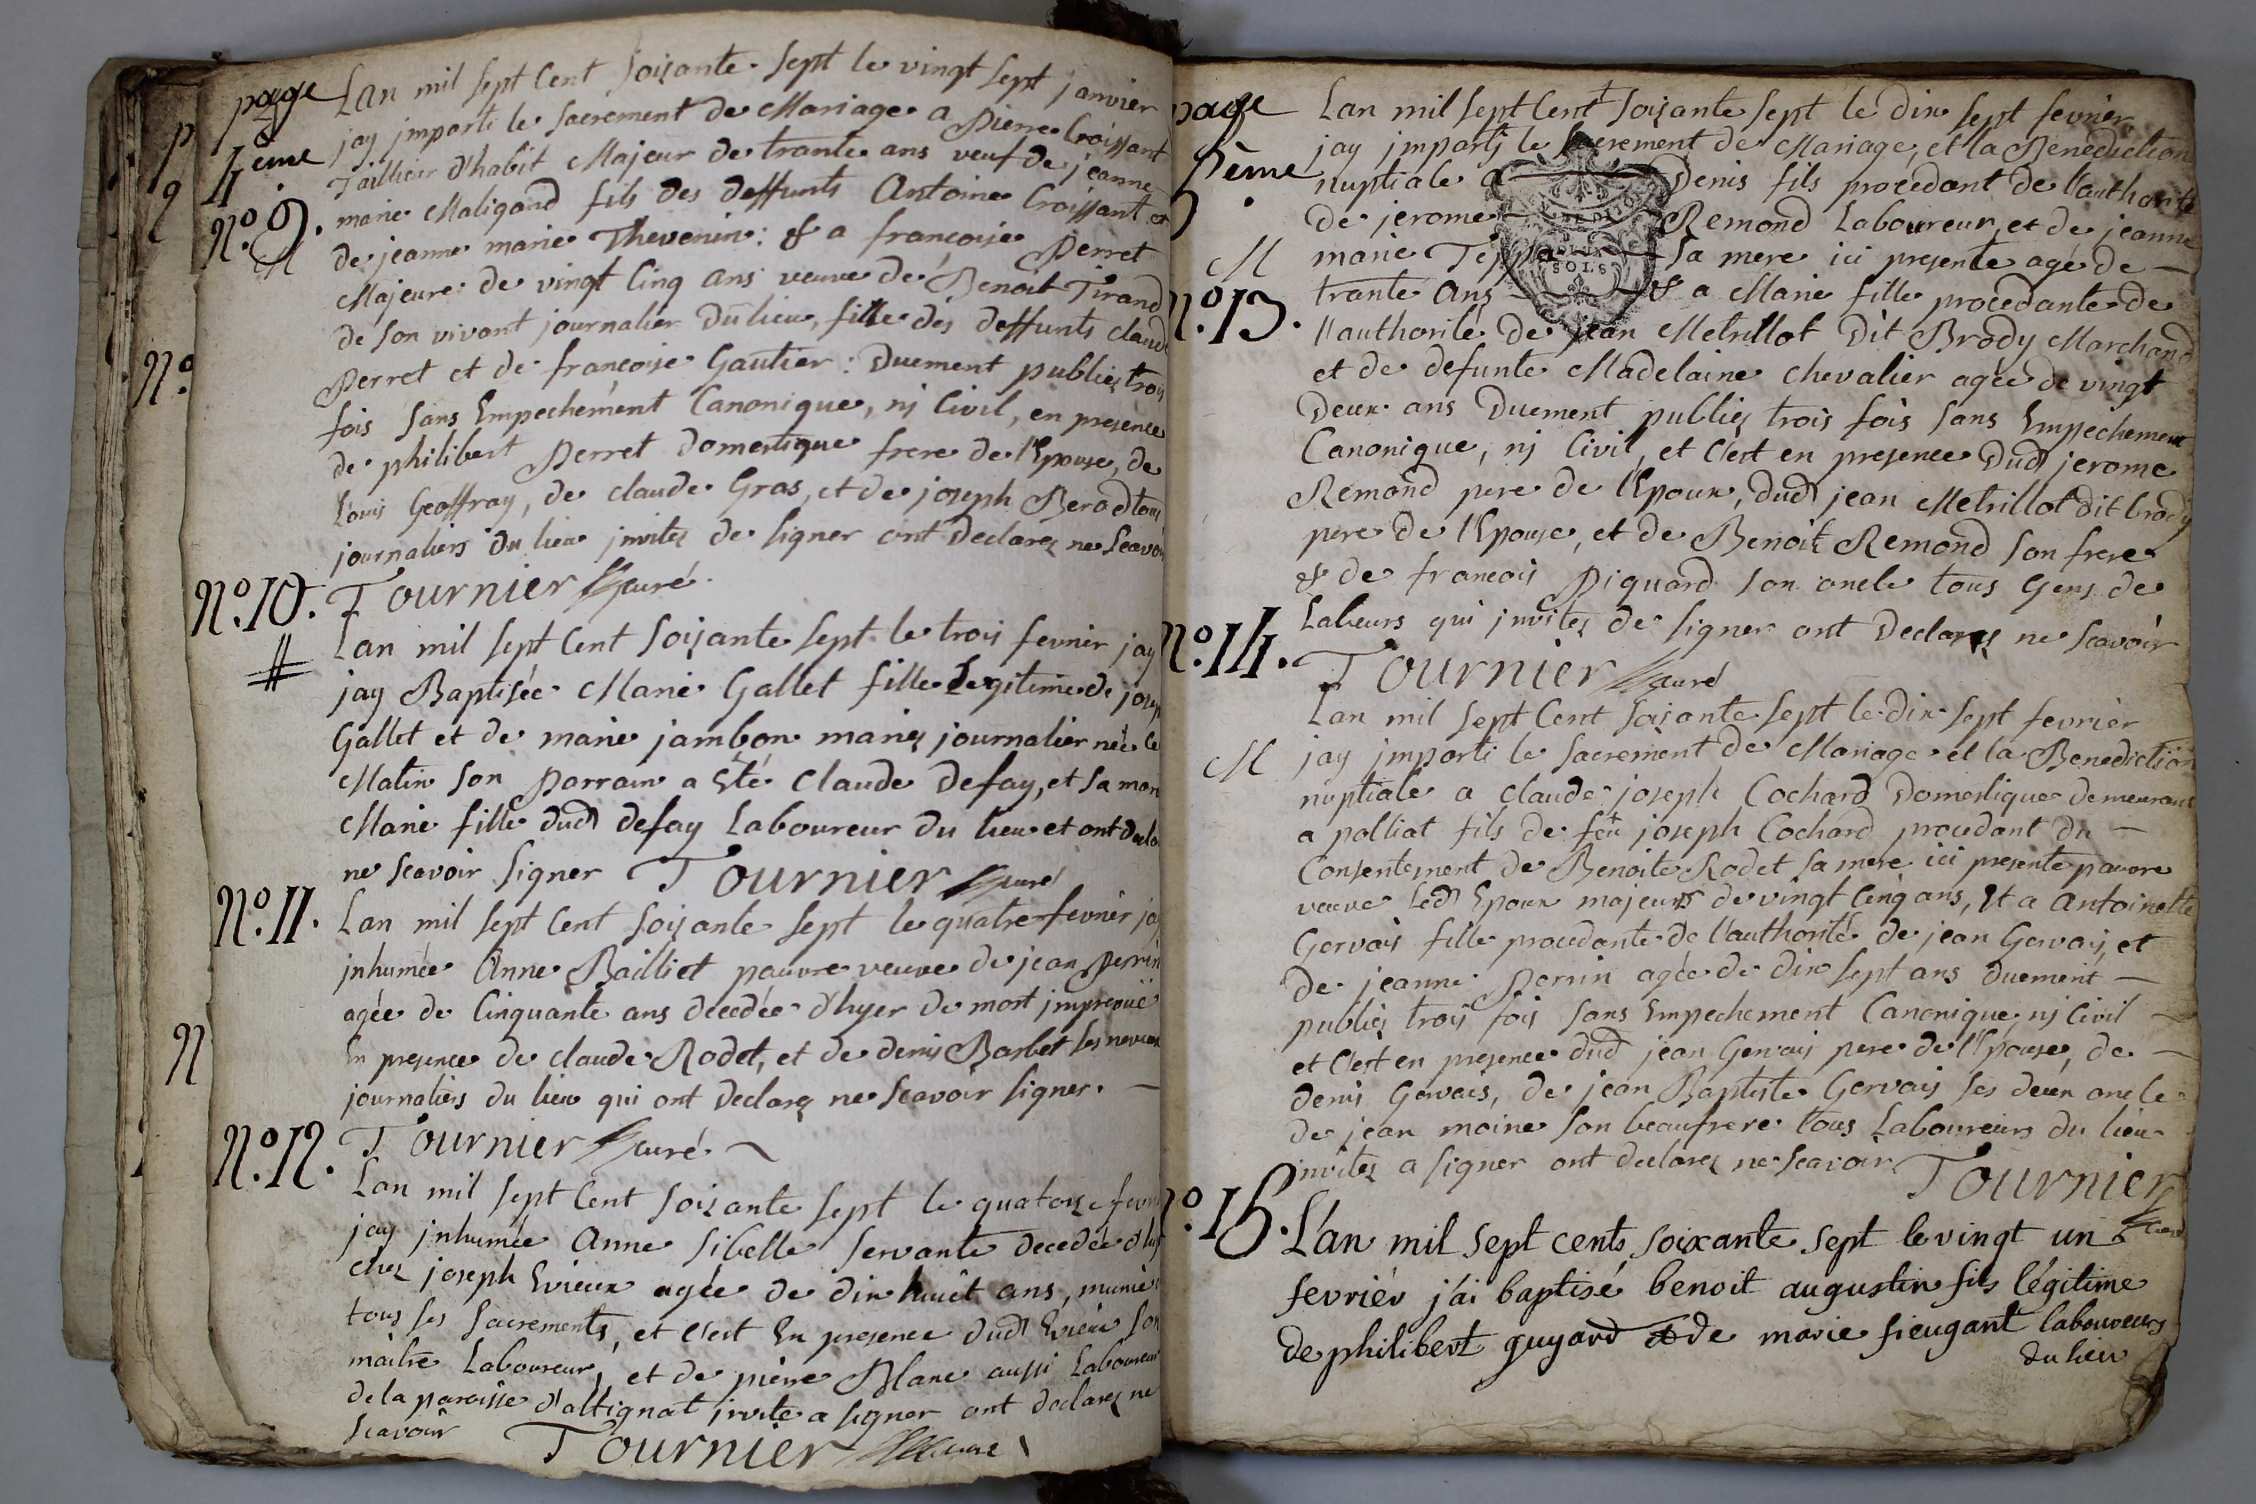 page
4ème
N°. 9.
M
Lan mil sept Cent soizante sept le vingt sept janvier
jay jmparti le sacrement de Mariage a Pierre Croissant
Taillieur d'habit Majeur de trante ans veuf de jeanne
marie Maligand fils des deffunts Antoine Croissant et
de jeanne marie Thevenin : & a francoise Perret
Majeure de vingt Cinq ans veuve de Benoit Tirand
de son vivant journalier du lieu, fille des deffunts claude
Perret et de francoise Gautier : Duement publiez trois
fois sans Empechement Canonique, nj Civil, en presence
de philibert Perret domestique frere de l'Epouse, de
Louis Geoffray, de claude Gras, et de joseph Berod tous
journaliers du lieu jnvitez de signer ont Declarez ne Scavoir
Tournier Curé.
N°. 10.
Lan mil sept Cent Soizante sept le trois fevrier jay
jay Baptisée Marie Gallet fille Legitime de joseph
Gallet et de marie jambon mariez journalier née ce
Matin son Parrain a Eté Claude Defay, et sa mar
Marie fille dud defay Laboureur du lieu et ont decla
ne scavoir signer Tournier Curé
N°. 11.
Lan mil sept Cent soizante sept le quatre fevrier jay
jnhumée Anne Bailliet pauvre veuve de jean Perrin
agée de Cinquante ans decedée d'hyer de mort jmprevüe
En presence de claude Rodet, et de denis Barbet ses neveux
journaliers du lieu qui ont Declarez ne Scavoir signer. —
Tournier Curé.
N°. 12.
Lan mil sept Cent soizante sept le quatorze fevri
jay jnhumée Anne Sibelle servante decedée d'hyer
chez joseph Evieux agée de dix huit ans, munie
tous ses Sacrements, et c'est En presence dud Evieux son
maître Laboureur, et de pierre Blanc aussi Laboureur
de la paroisse d'attignat jnvitez a signer ont declarez ne
scavoir Tournier Curé
page
5ème
M
N°. 13.
Lan mil sept Cent soizante sept le dix sept fevrier
jay jmparti le sacrement de Mariage, et la Benediction
nuptiale a Denis fils procedant de l'authorité
de jerome Remond Laboureur, et de jeanne
marie Teppe Sa mere ici presente agé de —
trante ans & a Marie fille procedante de
l'authorité de jean Metrillot Dit Brody Marchand
et de defunte Madelaine chevalier agée de vingt
Deux ans Duement publiez trois fois sans Empechement
Canonique, nj Civil, et C'est en presence Dud jerome
Remond pere de l'Epoux, dud jean Metrillot dit brody
pere de l'Epouse, et de Benoit Remond son frere
& de francois Piquard son oncle tous Gens de
Labeurs qui jnvitez de signer ont Declarez ne Scavoir
Tournier Curé
N°. 14.
M
Lan mil sept Cent soizante sept le dix sept fevrier
jay jmparti le Sacrement de Mariage et la Benediction
nuptiale a claude joseph Cochard Domestique demeurant
a polliat fils de feu joseph Cochard procedant du —
Consentement de Benoite Rodet sa mere ici presente pauvre
veuve Led Epoux majeurs de vingt Cinq ans, Et a Antoinette
Gervais fille procedante de l'authorité de jean Gervais, et
de jeanne Perrin agée de dix sept ans duement —
publiez trois fois sans Empechement Canonique nj Civil —
et C'est en presence dud jean Gervais pere de l'Epouse, de —
denis Gervais, de jean Baptiste Gervais ses deux oncle
de jean moine son beaufrere tous Laboureurs du lieu
jnvitez a signer ont declarez ne scavoir Tournier
Curé
N°. 15.
L'an mil sept cents soixante sept le vingt un
fevriér j'ai baptisé benoit augustin fils légitime
de philibert guyard & de marie fieugant laboureurs
du lieu